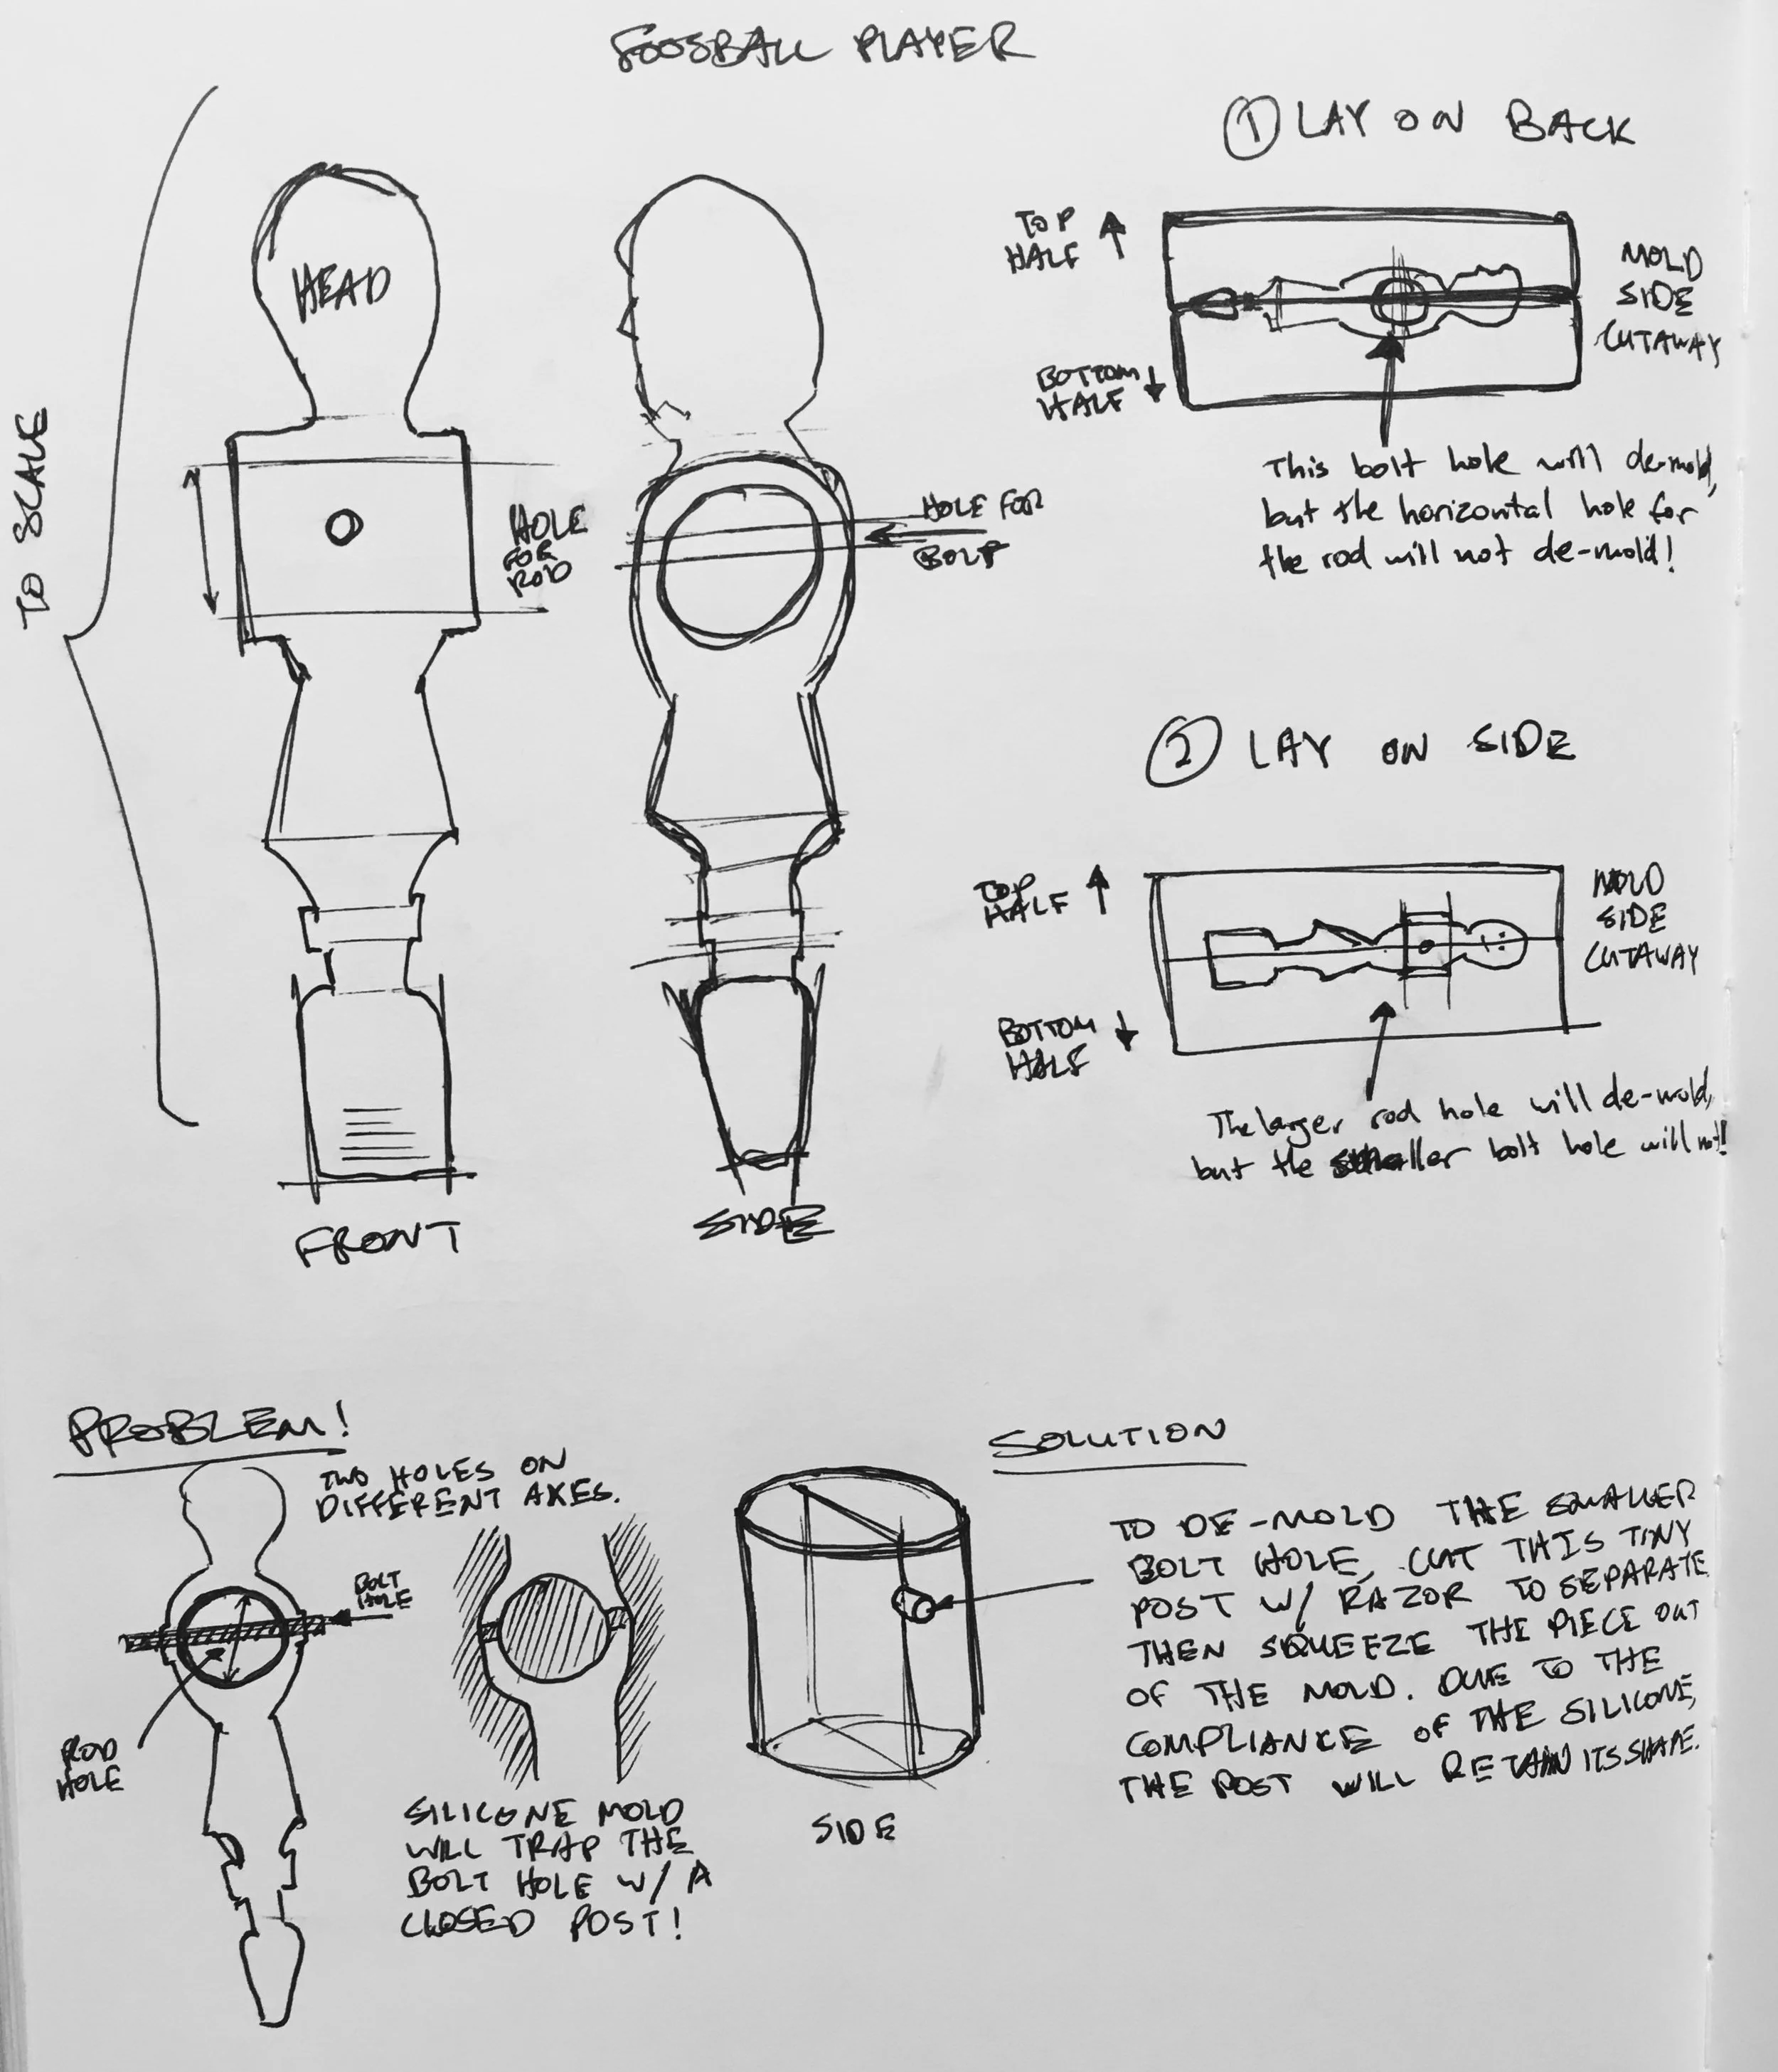 FOOSBALL PLAYER
TO SCALE
HEAD
HOLE
FOR
ROD
FRONT
HOLE FOR
BOLT
SIDE
① LAY ON BACK
TOP
HALF
BOTTOM
HALF
MOLD
SIDE
CUTAWAY
This bolt hole will de-mold,
but the horizontal hole for
the rod will not de-mold!
② LAY ON SIDE
TOP
HALF
BOTTOM
HALF
MOLD
SIDE
CUTAWAY
The larger rod hole will de-mold,
but the smaller bolt hole will not!
PROBLEM!
TWO HOLES ON
DIFFERENT AXES.
BOLT
HOLE
ROD
HOLE
SILICONE MOLD
WILL TRAP THE
BOLT HOLE W/ A
CLOSED POST!
SIDE
SOLUTION
TO DE-MOLD THE SMALLER
BOLT HOLE, CUT THIS TINY
POST W/ RAZOR TO SEPARATE
THEN SQUEEZE THE PIECE OUT
OF THE MOLD. DUE TO THE
COMPLIANCE OF THE SILICONE,
THE POST WILL RETAIN ITS SHAPE.